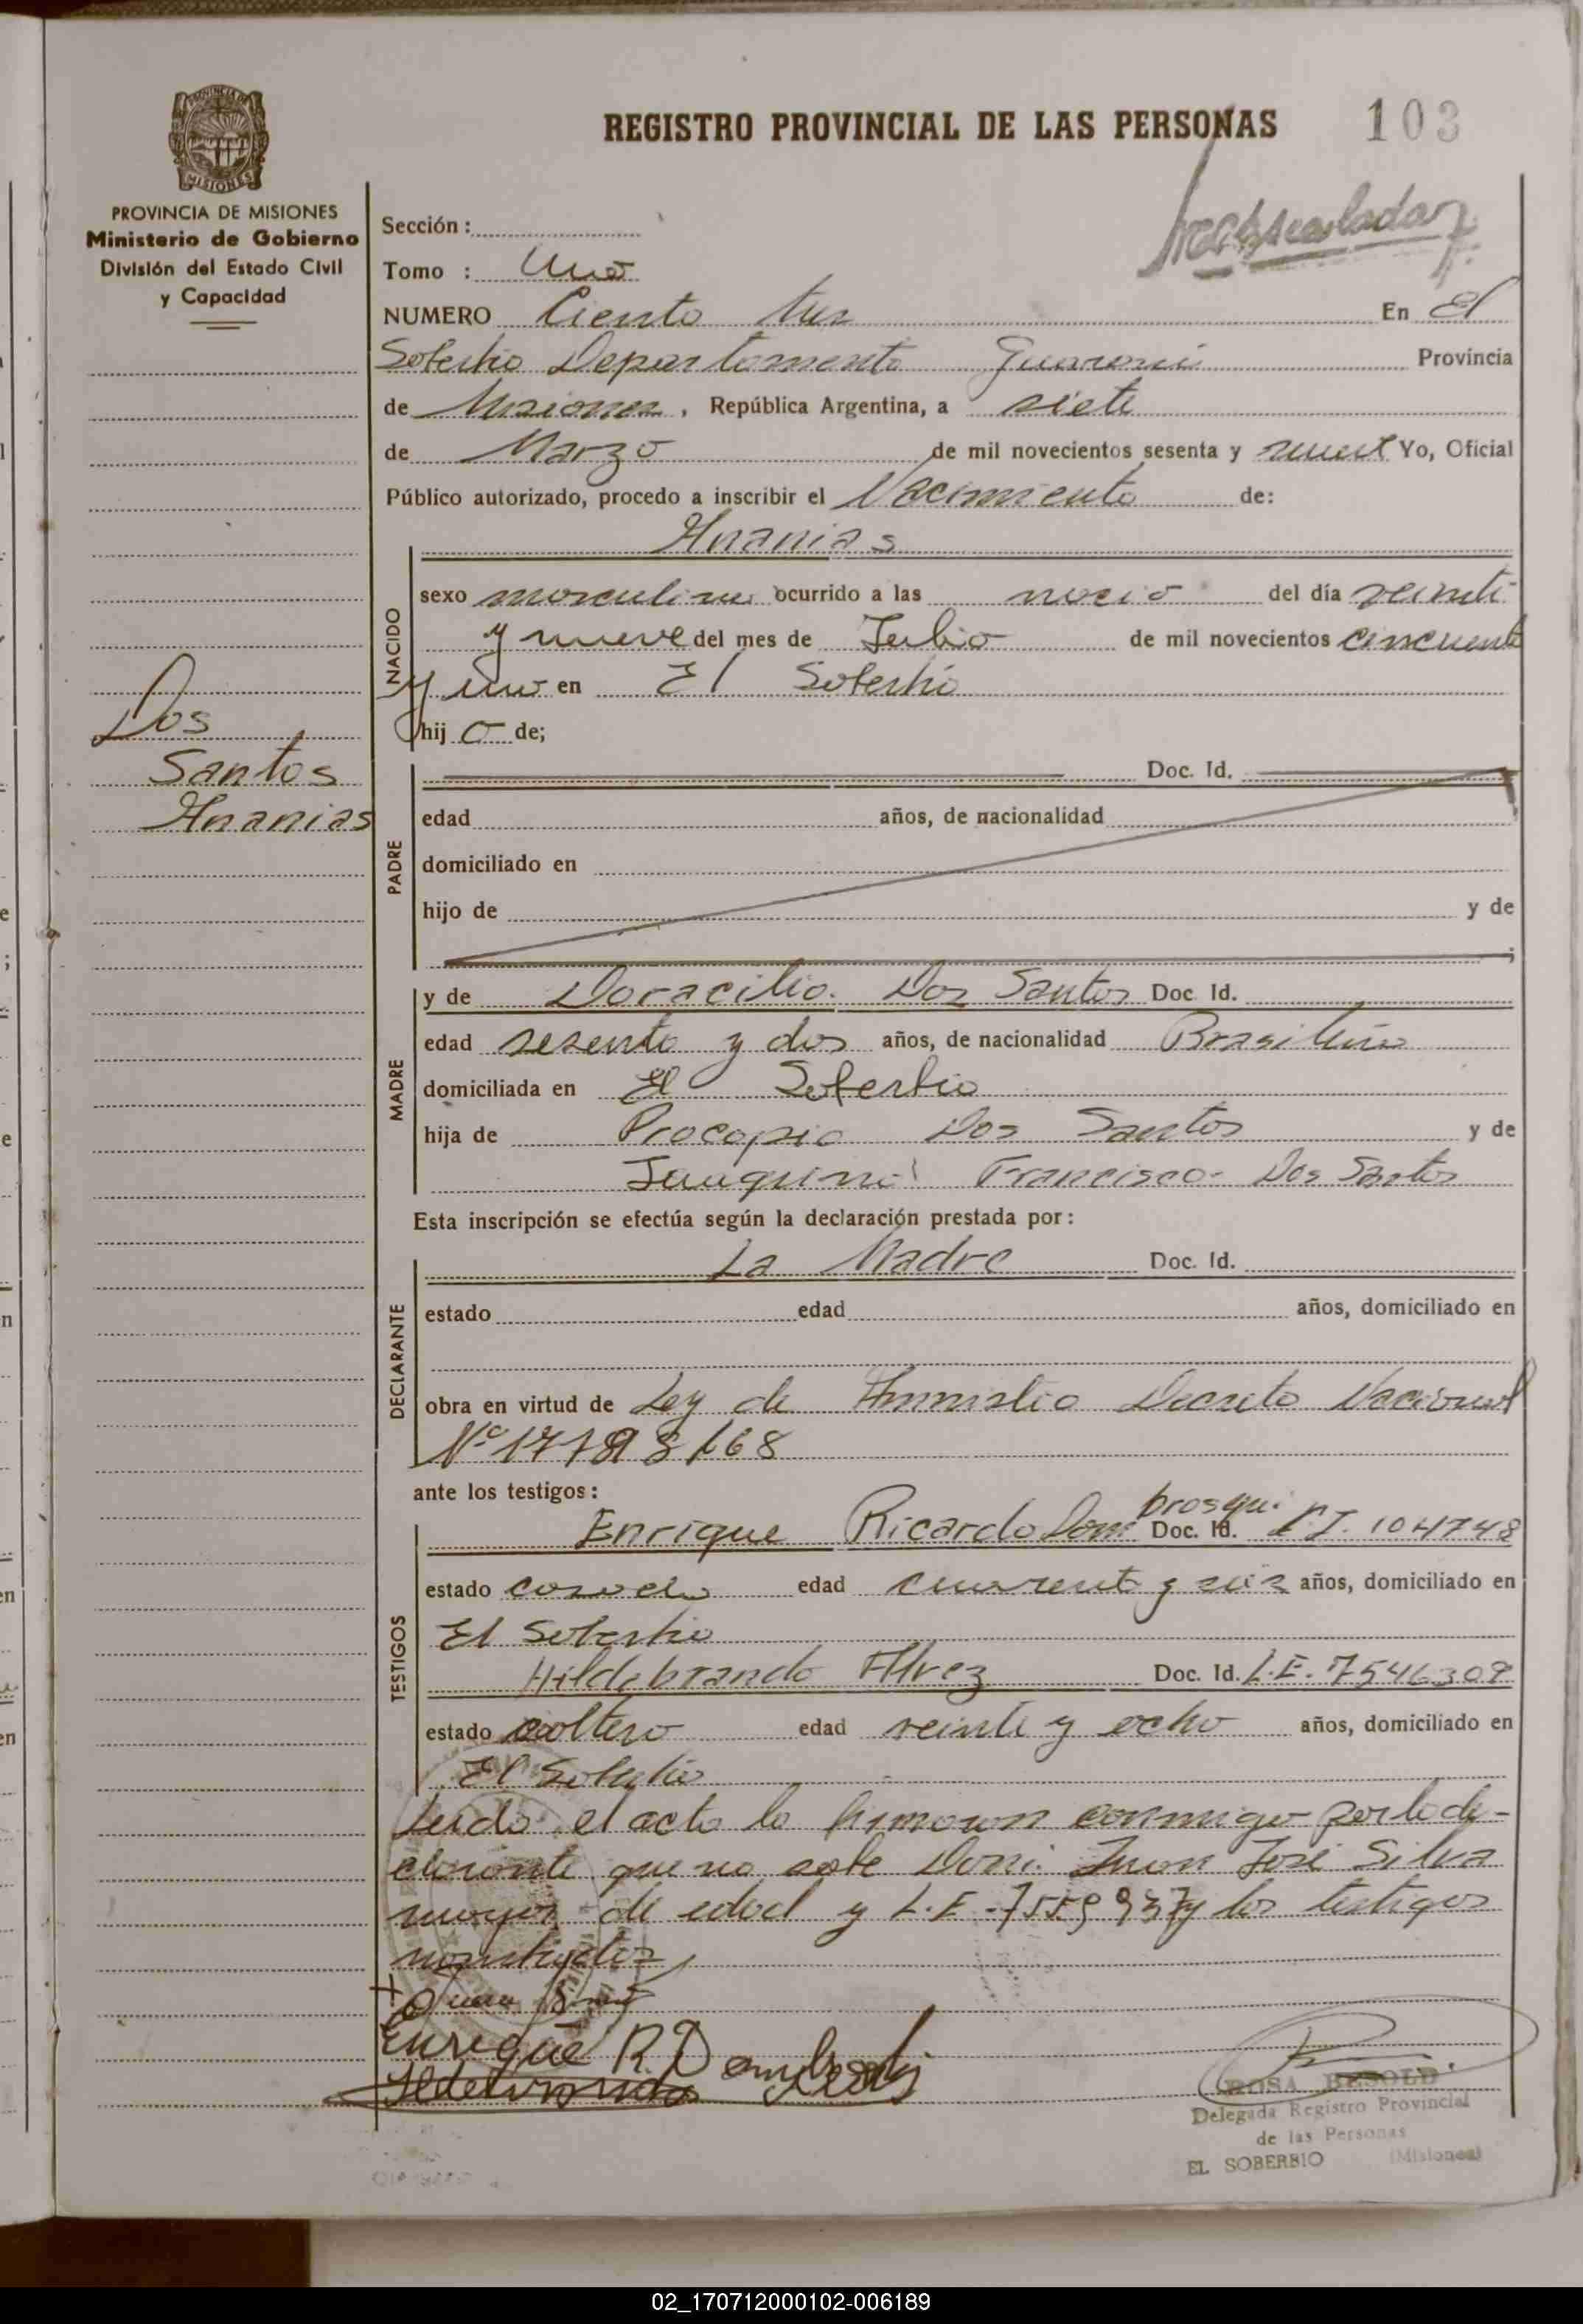 REGISTRO PROVINCIAL DE LAS PERSONAS 103
PROVINCIA DE MISIONES
Ministerio de Gobierno
División del Estado Civil
y Capacidad
Sección :
Tomo : Uno
NUMERO Ciento tres En El
Soberbio Departamento Guarani Provincia
de Misiones, República Argentina, a siete
de Marzo de mil novecientos sesenta y nueve Yo, Oficial
Público autorizado, procedo a inscribir el Nacimiento de:
Ananias
NACIDO
sexo masculino ocurrido a las del día veinti
y nueve del mes de Julio de mil novecientos cincuenta
y uno en El Soberbio
hij o de;
Dos
Santos
Ananias
PADRE
Doc. Id.
edad años, de nacionalidad
domiciliado en
hijo de y de
;
MADRE
y de Doracilia Dos Santos Doc Id.
edad sesenta y dos años, de nacionalidad Brasileña
domiciliada en El Soberbio
hija de Procopio Dos Santos y de
Juaquina Francisca Dos Santos
Esta inscripción se efectúa según la declaración prestada por:
DECLARANTE
La Madre Doc. Id.
estado edad años, domiciliado en
obra en virtud de Ley de Amnistia Decreto Nacional
Nº /68
ante los testigos:
TESTIGOS
Enrique Ricardo Dombrosqui Doc. Id. C.I. 104748
estado casado edad cuarenta y seis años, domiciliado en
El Soberbio
Hildebrando Alvez Doc. Id. L.E. 7546309
estado soltero edad veinte y ocho años, domiciliado en
El Soberbio
Leido el acta la firmaron conmigo por la de-
clarante que no sabe Don: Juan José Silva
mayor de edad y L.E. 7559937 y los testigos
Enrique R. Dombroski
ROSA BESOLD
Delegada Registro Provincial
de las Personas
EL SOBERBIO (Misiones)
02_170712000102-006189